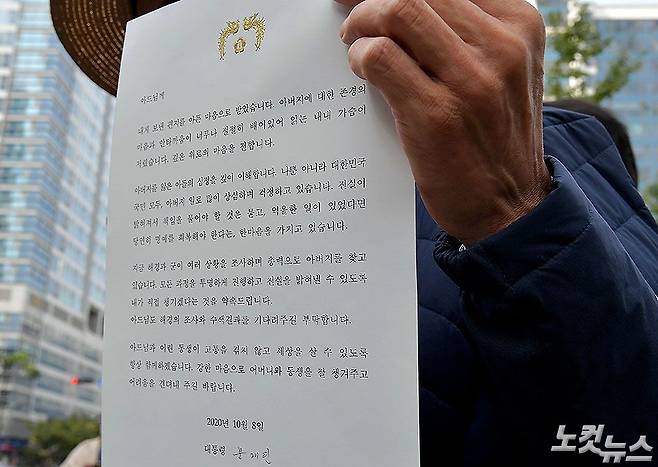 아드님께
내게 보낸 편지를 아픈 마음으로 받았습니다. 아버지에 대한 존경의
마음과 안타까움이 너무나 절절히 배어있어 읽는 내내 가슴이
저렸습니다. 깊은 위로의 마음을 전합니다.
아버지를 잃은 아들의 심정을 깊이 이해합니다. 나뿐 아니라 대한민국
국민 모두, 아버지 일로 많이 상심하며 걱정하고 있습니다. 진실이
밝혀져서 책임을 물어야 할 것은 묻고, 억울한 일이 있었다면
당연히 명예를 회복해야 한다는, 한마음을 가지고 있습니다.
지금 해경과 군이 여러 상황을 조사하며 총력으로 아버지를 찾고
있습니다. 모든 과정을 투명하게 진행하고 진실을 밝혀낼 수 있도록
내가 직접 챙기겠다는 것을 약속드립니다.
아드님도 해경의 조사와 수색결과를 기다려주길 부탁합니다.
아드님과 어린 동생이 고통을 겪지 않고 세상을 살 수 있도록
항상 함께하겠습니다. 강한 마음으로 어머니와 동생을 잘 챙겨주고
어려움을 견뎌내 주길 바랍니다.
2020년 10월 8일
대통령 문재인
노컷뉴스